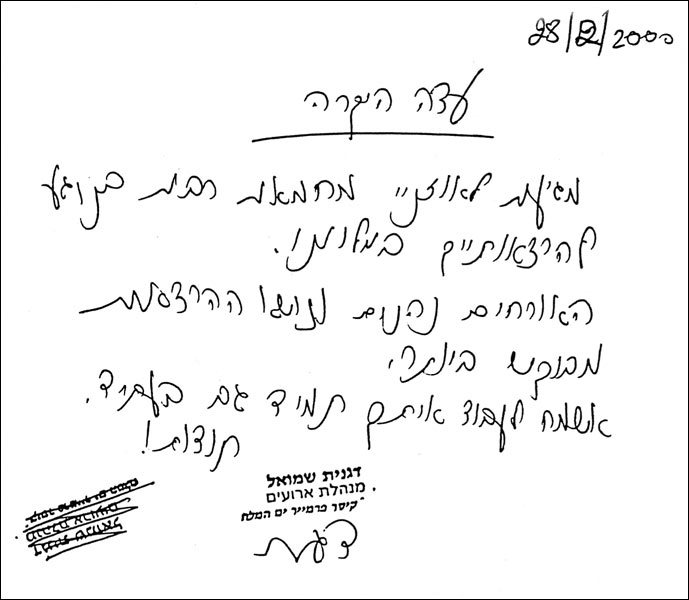 28/12/2000
עדה היקרה
מגיעות לאוזניי מחמאות רבות בנוגע
להרצאותייך במלוננו.
האורחים נהנים ונושא ההרצאות
מבוקש ביותר.
אשמח לעבוד איתך תמיד גם בעתיד.
תודות!
דגנית שמואל
מנהלת ארועים
קיסר פרמייר ים המלח
דגנית